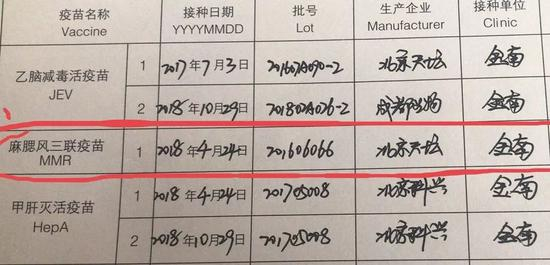 疫苗名称 接种日期 批号 生产企业 接种单位
Vaccine YYYYMMDD Lot Manufacturer Clinic
乙脑减毒活疫苗 1 2017年7月3日 北京天坛 金南
JEV 2 2018年10月29日 金南
麻腮风三联疫苗 1 2018年4月24日 201606066 北京天坛 金南
MMR
甲肝灭活疫苗 1 2018年4月24日 201705008 北京科兴 金南
HepA 2 2018年10月29日 201705008 北京科兴 金南